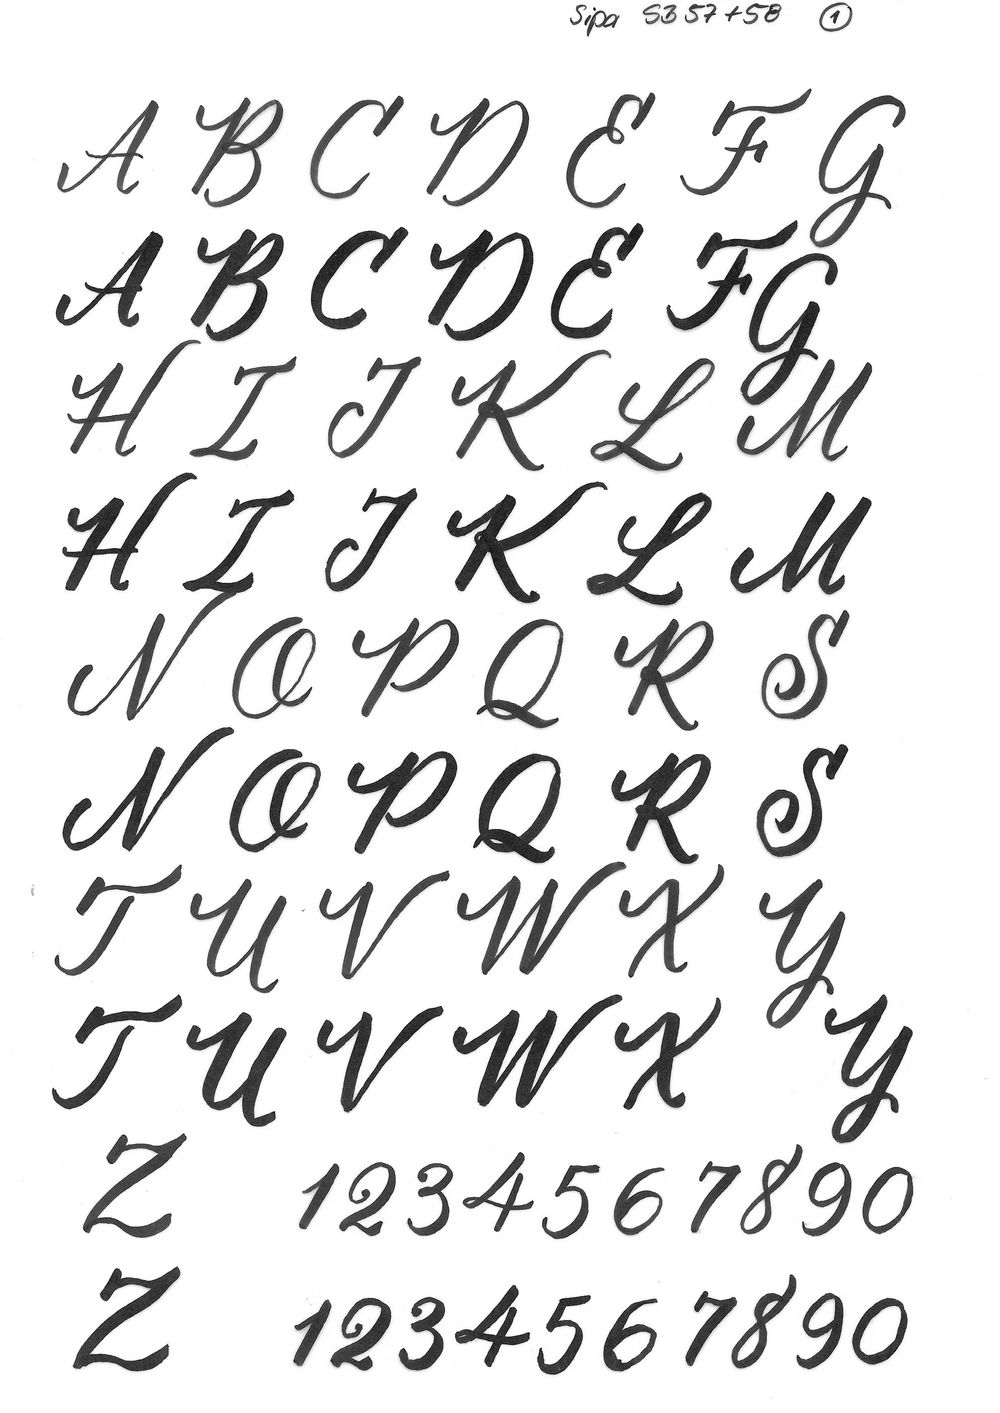 Sipa SB 57 + 58 1
A B C D E F G
A B C D E F G
H I J K L M
H I J K L M
N O P Q R S
N O P Q R S
T U V W X Y
T U V W X Y
Z 1 2 3 4 5 6 7 8 9 0
Z 1 2 3 4 5 6 7 8 9 0